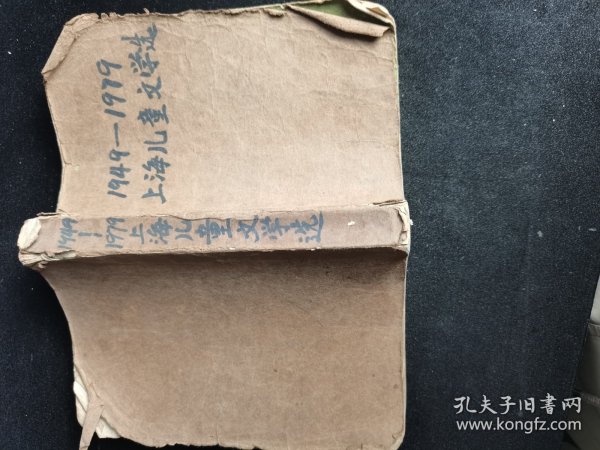 1949—1979
上海儿童文学选
1949—1979上海儿童文学选
孔夫子旧书网
www.kongfz.com